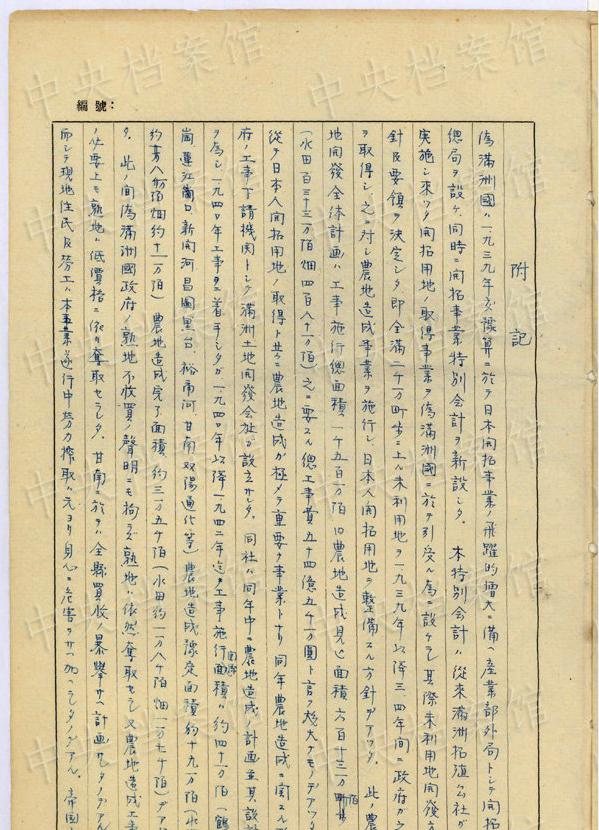 編號：
附記
偽滿洲國ハ一九三九年度豫算ニ於テ日本開拓事業ノ飛躍的增大ニ備ヘ產業部外局トシテ開拓
總局ヲ設ケ、同時ニ開拓事業特別會計ヲ新設シタ。本特別會計ハ從來滿洲拓殖公社ガ
實施シ來ツタ開拓用地ノ取得事業ヲ偽滿洲國ニ於テ引受ケル為ニ設ケラレ其際未利用地開發方
針及要領ヲ決定シタ即全滿二千万町步ニ上ル未利用地ヲ一九三九年以降三、四年間ニ政府ガ
ヲ取得シ、之ニ対シ農地造成事業ヲ施行シ、日本人開拓用地ヲ整備スル方針デアツタ。此ノ農
地開發全体計画ハ工事施行總面積一千五百万陌农地造成見込面積六百十三万陌
(水田百三十三万陌畑四百八十万陌)之ニ要スル總工事費五十四億五千万圓ト言フ厖大ナモノデアツ
從テ日本人開拓用地ノ取得ト共ニ農地造成ガ極メテ重要ナ事業トナリ同年農地造成ニ関スル
府ノ工事下請機関トシテ滿洲土地開發会社ガ設立サレタ。同社ハ同年中ニ農地造成ノ計画並其設計
ヲ為シ一九四〇年工事ニ着手シタガ一九四〇年以降一九四二年迄ノ工事施行面積ハ約四十万陌(鶴
崗蓮江口新開河昌圖黑台裕甫河甘南双陽通化等)農地造成豫定面積約十九万陌(水
約八万陌畑約十一万陌)農地造成完了面積約三万五千陌(水田約一万八千陌畑一万七千陌)デア
タ。此ノ間偽滿洲國政府ノ熟地不收買ノ聲明ニモ拘ラズ熟地ハ依然奪取セラレ又農地造成工事
ノ必要上モ熟地ハ低價格ニ依リ奪取セラレタ。甘南ニ於テハ全縣買收ノ暴擧サヘ計画サレタノデアル
而シテ現地住民及勞工ハ本事業遂行中勞力搾取ハ元ヨリ身心ニ危害ヲサヘ加ヘラレタノデアル。帝國
中央档案馆